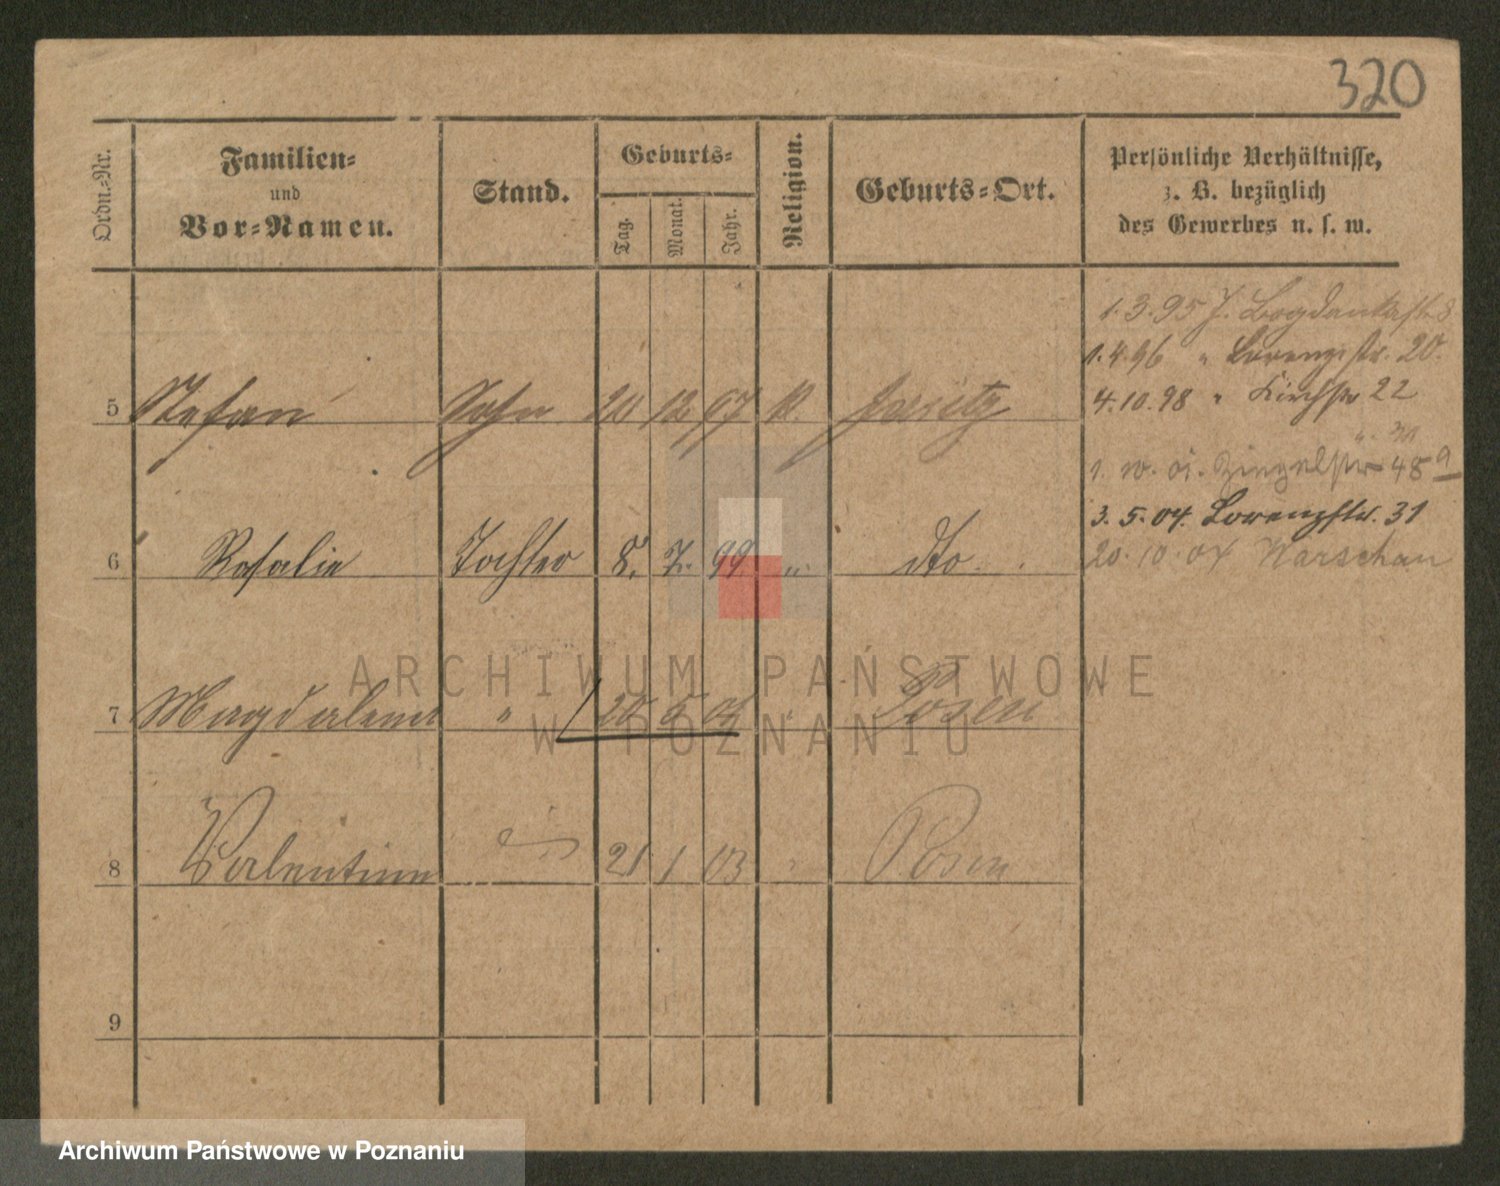 320
Ordn.-Nr.
Familien-
und
Vor-Namen.
Stand.
Geburts-
Tag.
Monat.
Jahr.
Religion.
Geburts-Ort.
Persönliche Verhältnisse,
z. B. bezüglich
des Gewerbes u. s. w.
1.3.95 J. Bogdankastr 8
1.4.96 " Lorenzstr. 20.
4.10.98 " Kirchstr 22
5 Stefan Sohn 20 12 97 k. Jersitz
1. 10. 01. Ziegelstr 48a
3. 5. 04. Lorenzstr. 31
20. 10. 04 Warschau
6 Rosalie Tochter 8. 7. 99 " dto.
7 Magdalena " 20 5 " Posen
8 Valentine 21 1 03 " Posen
9
ARCHIWUM PAŃSTWOWE
W POZNANIU
Archiwum Państwowe w Poznaniu